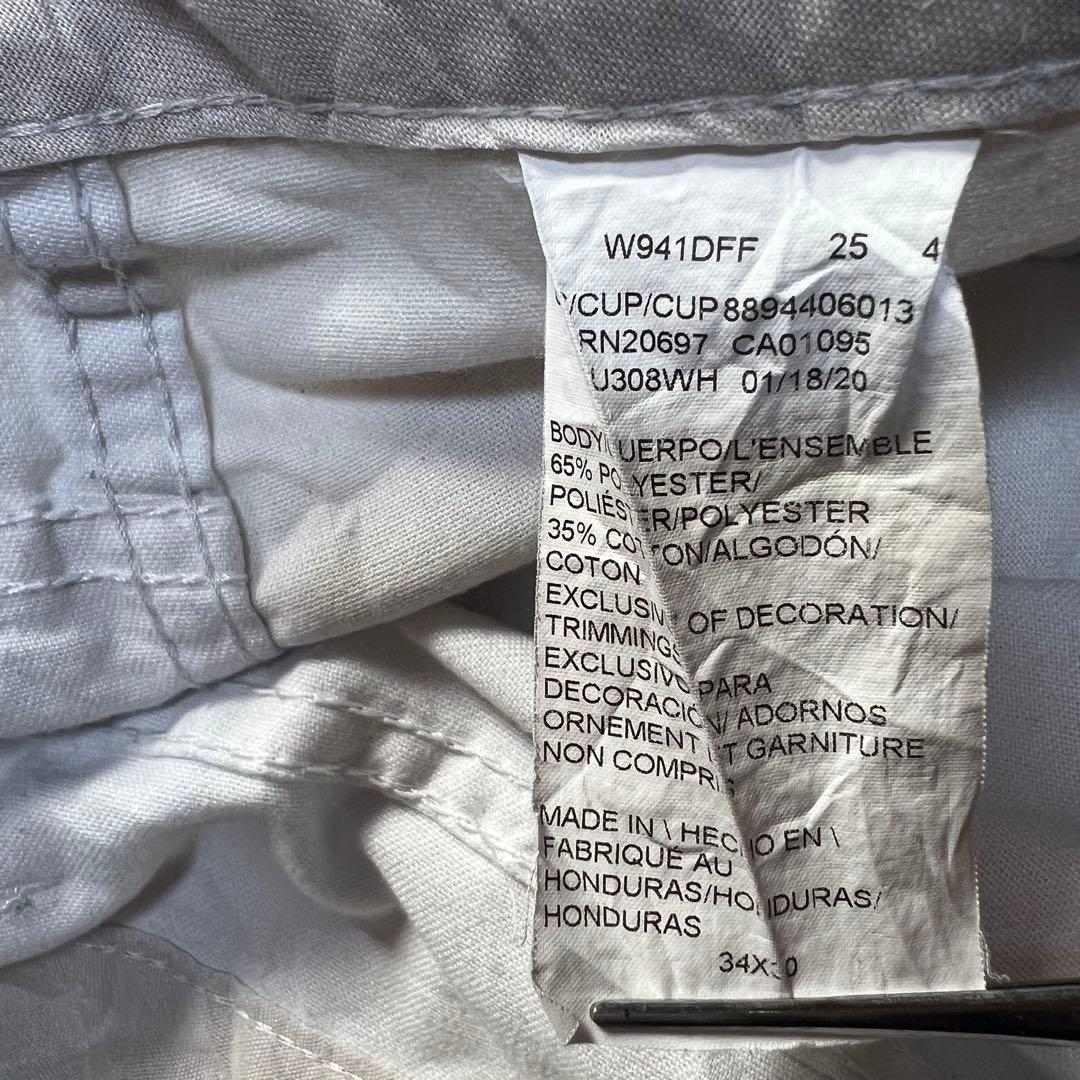 W941DFF 25 4
/CUP/CUP 8894406013
RN20697 CA01095
U308WH 01/18/20
BODY/ UERPO/L'ENSEMBLE
65% PO YESTER/
POLIÉST ER/POLYESTER
35% COT ON/ALGODÓN/
COTON
EXCLUSIV OF DECORATION/
TRIMMINGS
EXCLUSIVO PARA
DECORACIÓN/ ADORNOS
ORNEMENT ET GARNITURE
NON COMPRIS
MADE IN \ HECHO EN \
FABRIQUÉ AU
HONDURAS/HONDURAS/
HONDURAS